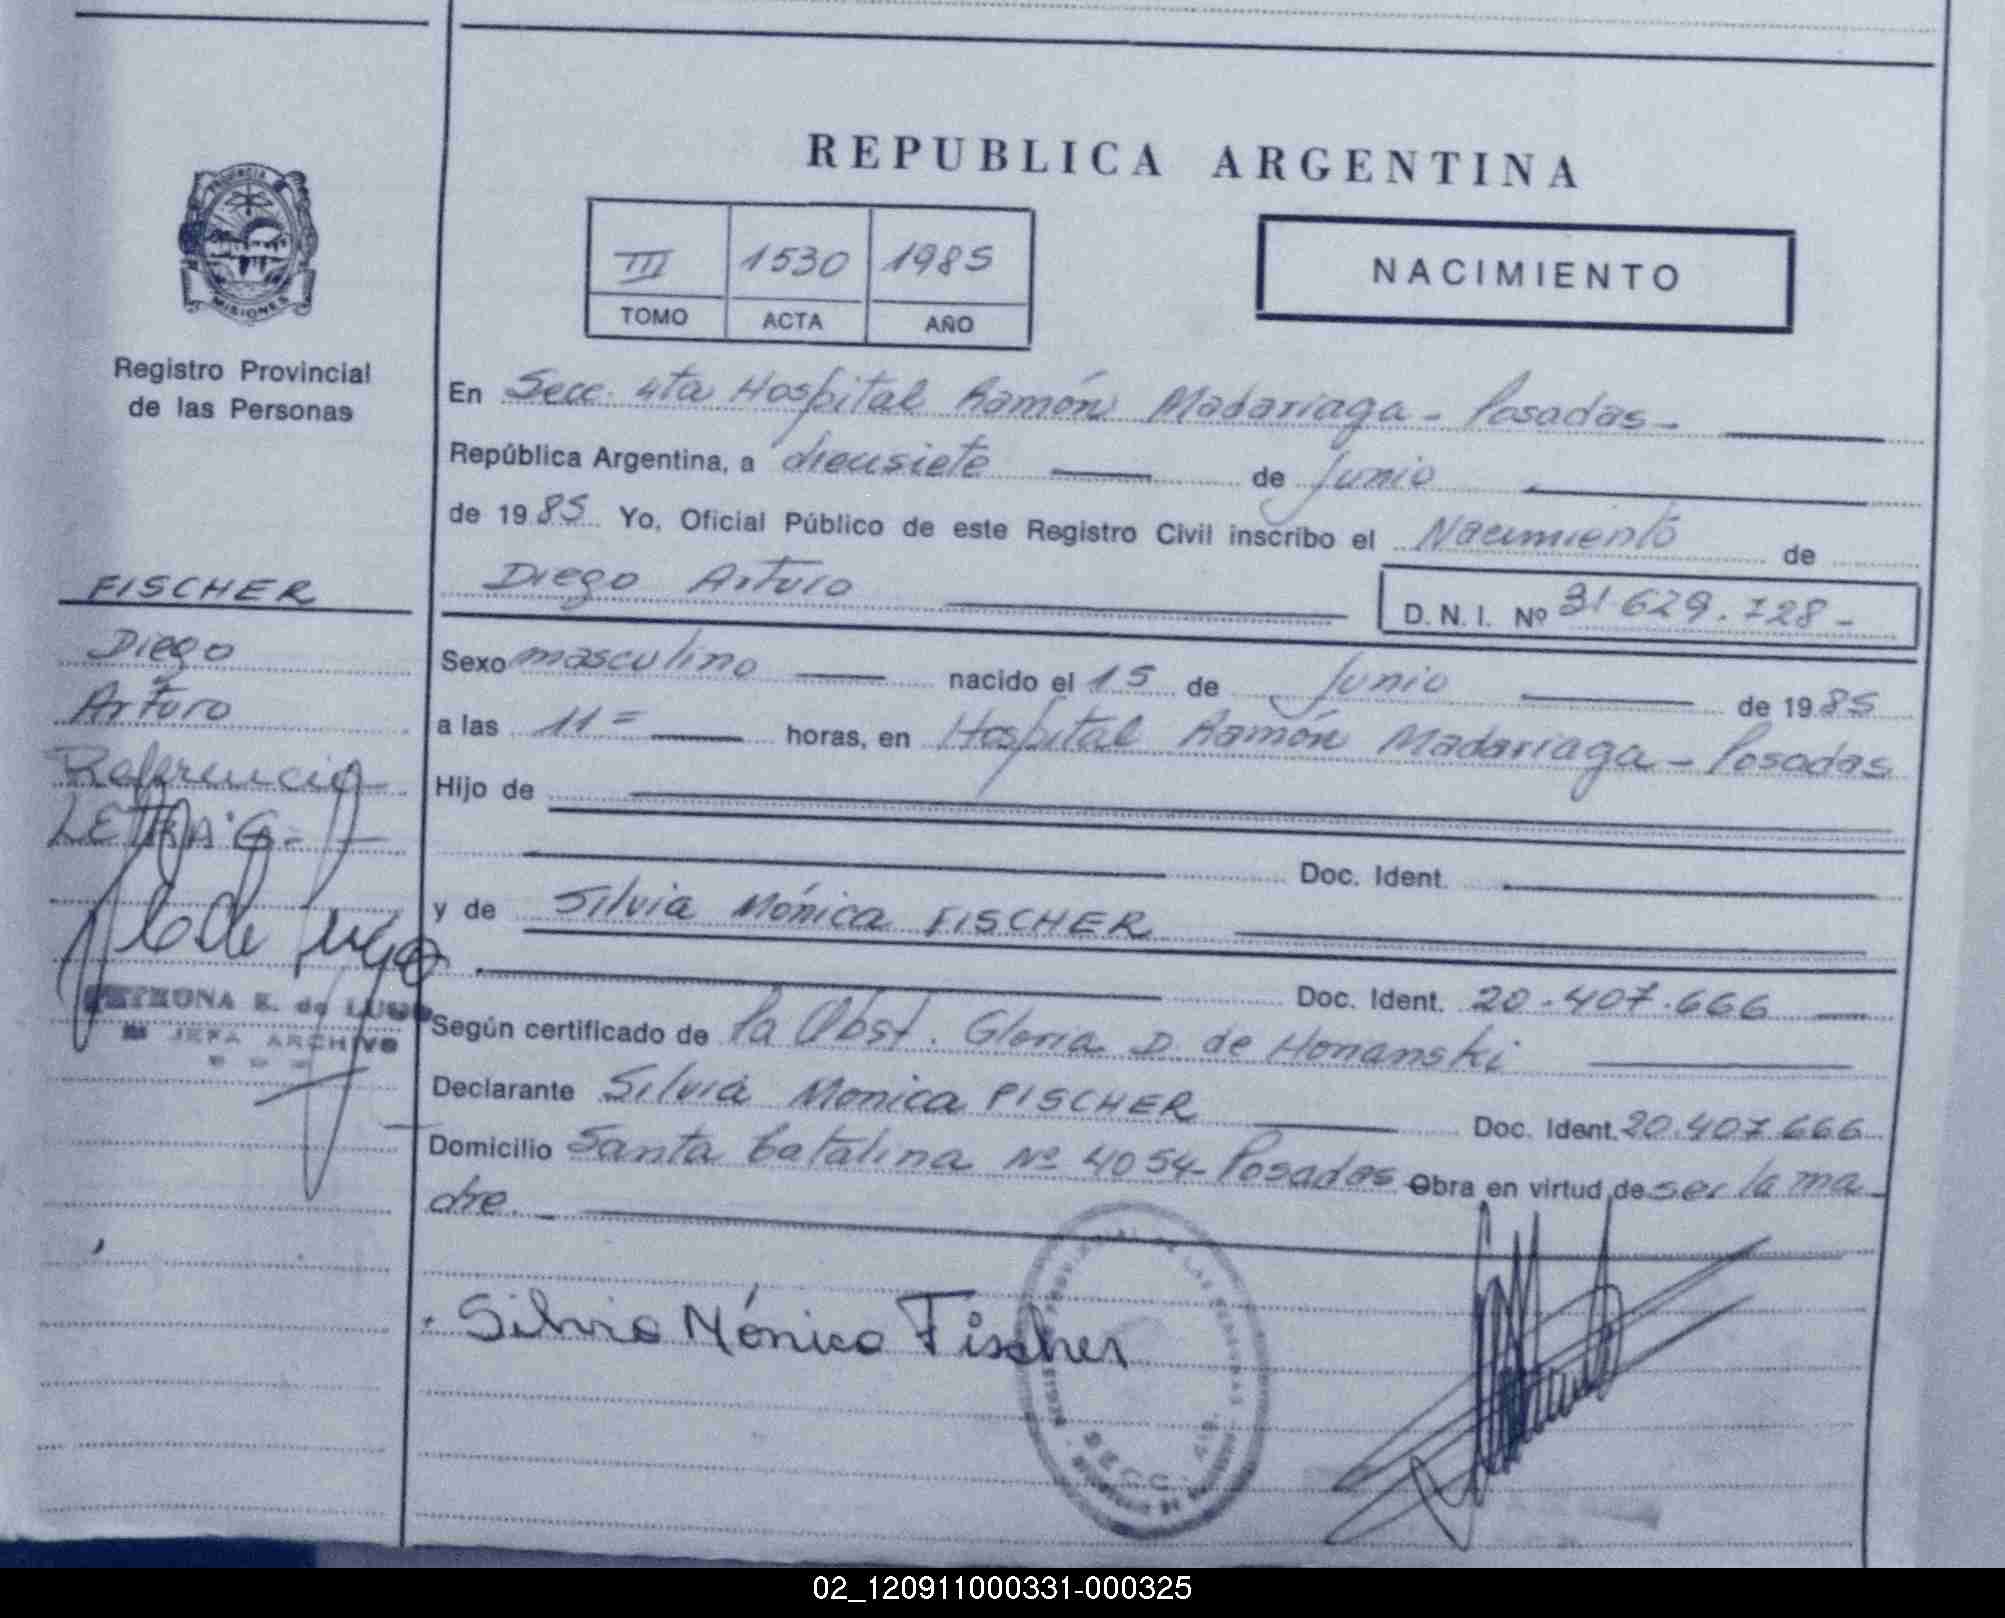 REPUBLICA ARGENTINA
PROVINCIA DE
MISIONES
Registro Provincial
de las Personas
III 1530 1985
TOMO ACTA AÑO
NACIMIENTO
En Secc. 4ta Hospital Ramón Madariaga - Posadas -
República Argentina, a diecisiete de Junio
de 1985 Yo, Oficial Público de este Registro Civil inscribo el Nacimiento de
Diego Arturo D. N. I. Nº 31.629.728 -
Sexo masculino nacido el 15 de Junio de 1985
a las 11 = horas, en Hospital Ramón Madariaga - Posadas
Hijo de
Doc. Ident.
y de Silvia Mónica FISCHER
Doc. Ident. 20.407.666
Según certificado de la Obst. Gloria D. de Honanski
Declarante Silvia Monica FISCHER Doc. Ident. 20.407.666
Domicilio Santa Catalina Nº 4054 - Posadas Obra en virtud de ser la ma
dre. -
Silvia Mónica Fischer
FISCHER
Diego
Arturo
Referencia
LETRA "G -
PETRONA E. de LUGO
JEFA ARCHIVO
02_120911000331-000325